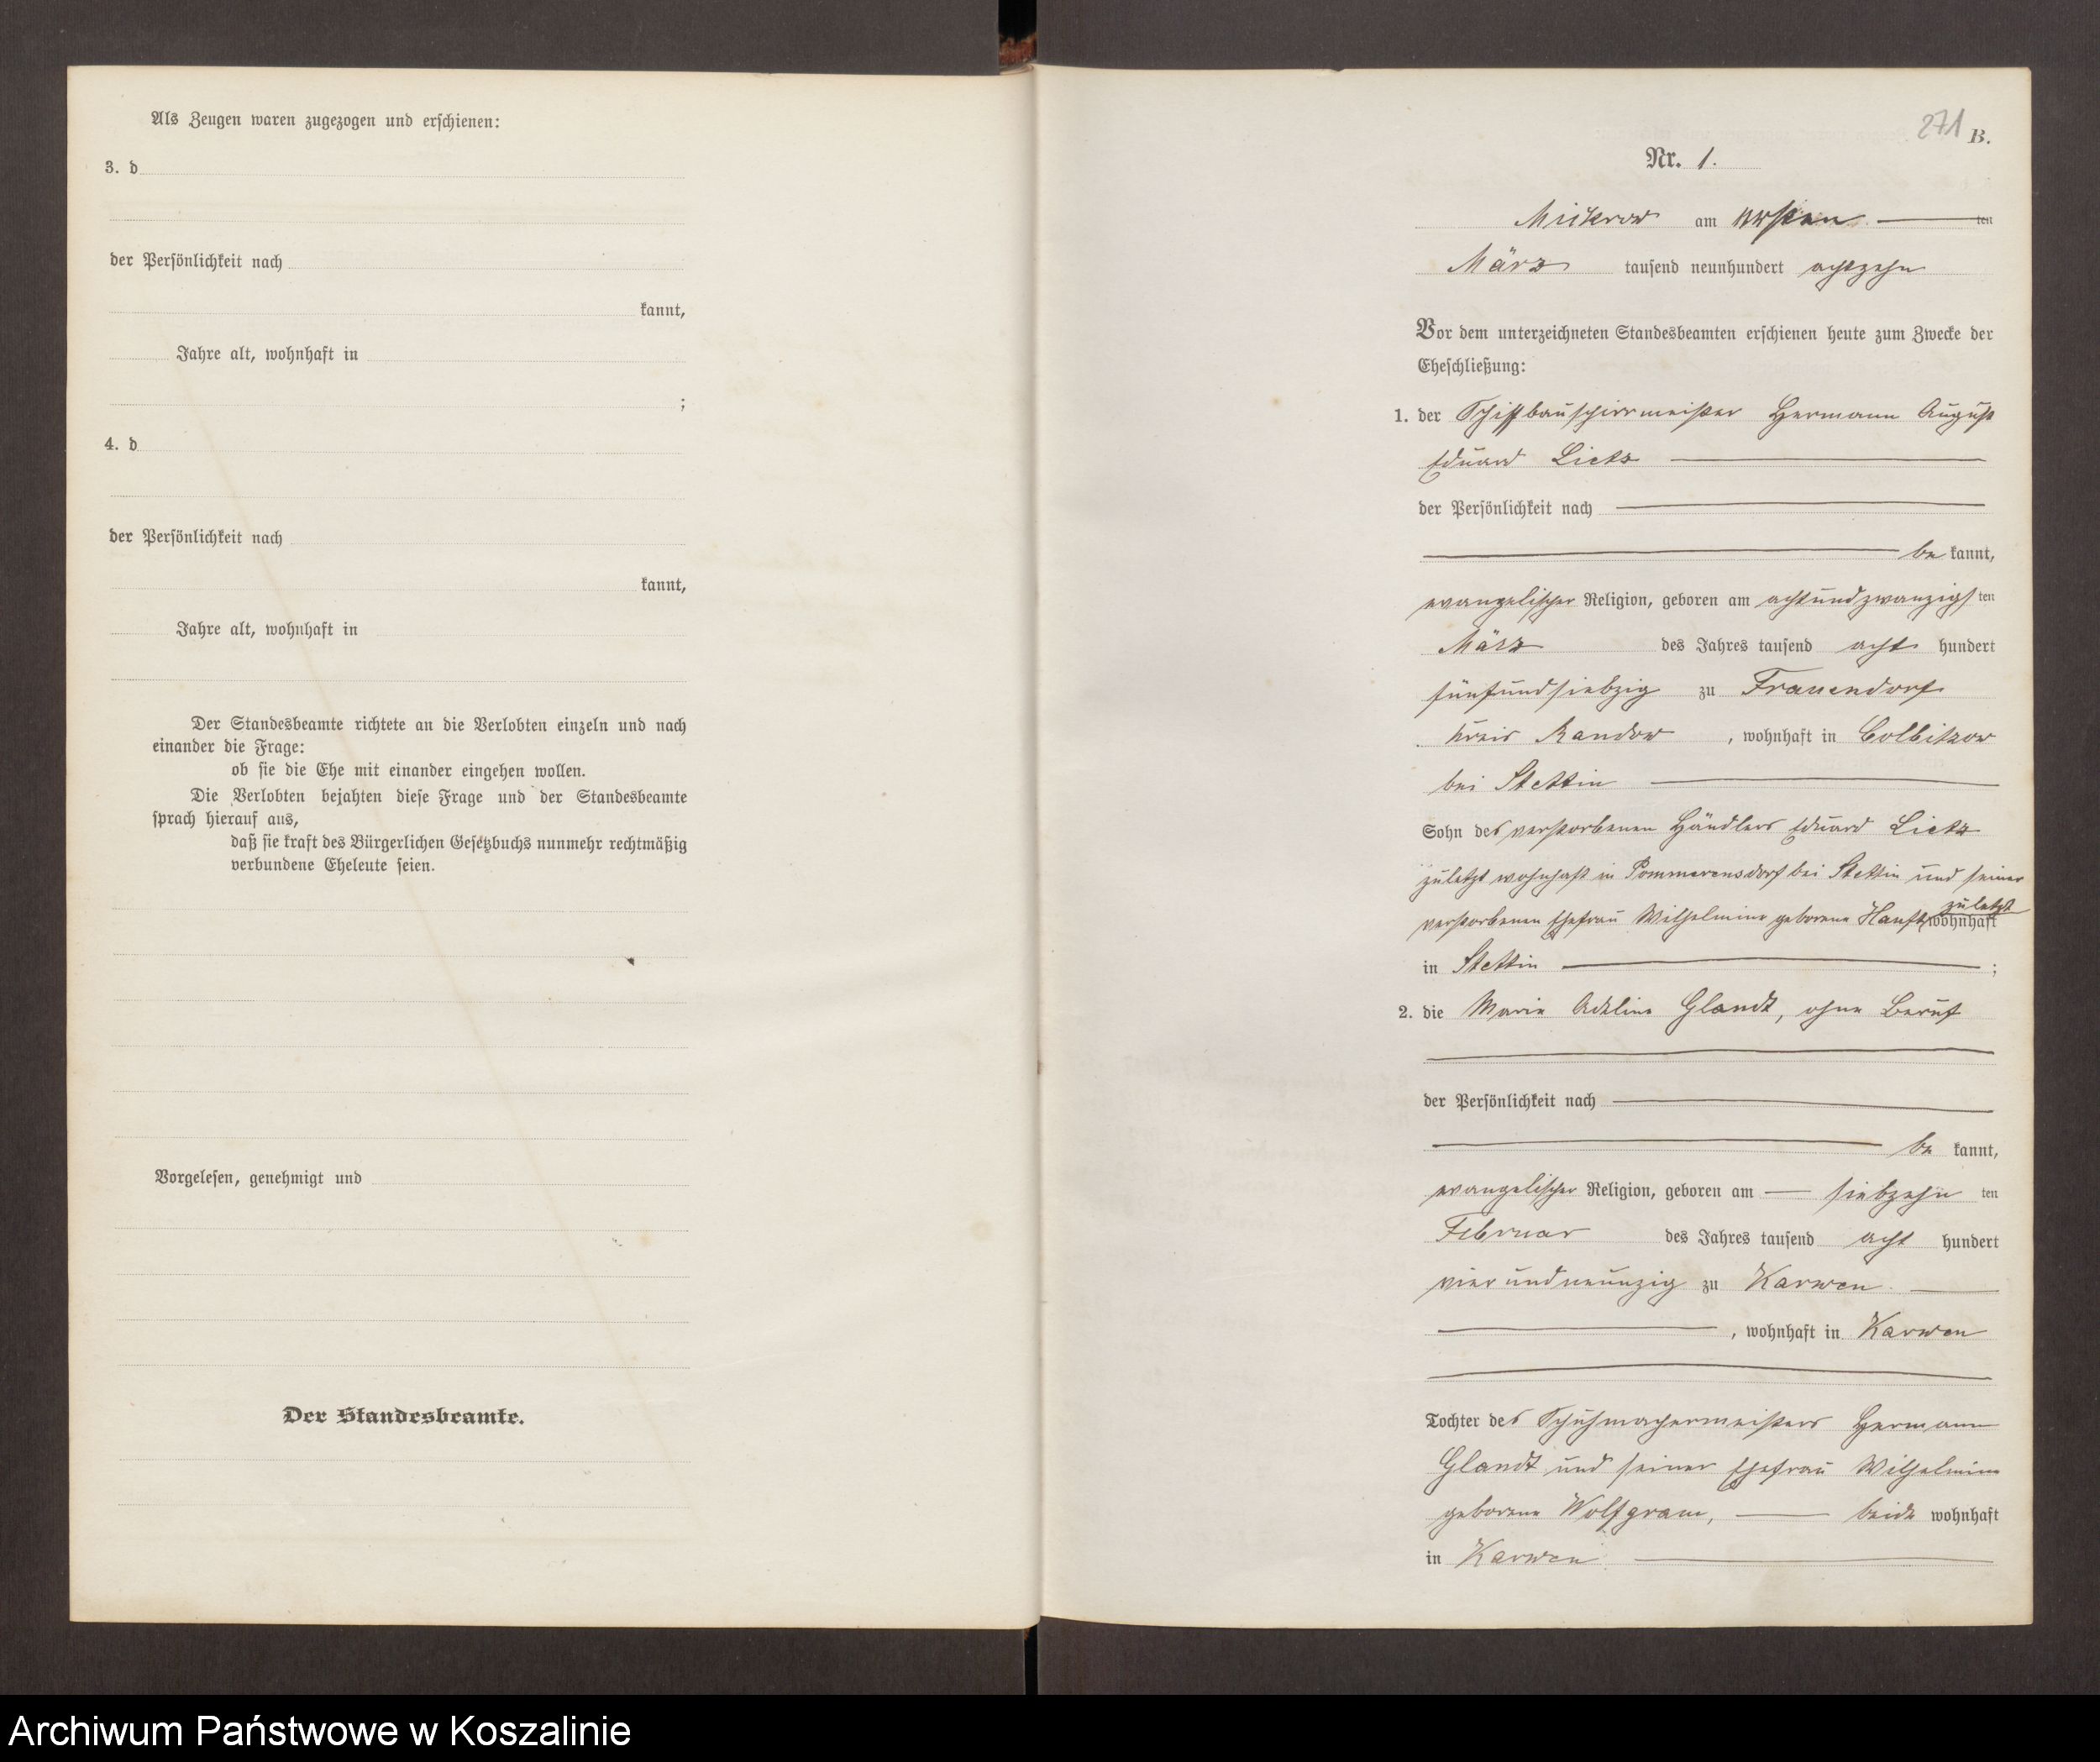 Als Zeugen waren zugezogen und erschienen:
3. d
der Persönlichkeit nach
kannt,
Jahre alt, wohnhaft in
;
4. d
der Persönlichkeit nach
kannt,
Jahre alt, wohnhaft in
Der Standesbeamte richtete an die Verlobten einzeln und nach
einander die Frage:
ob sie die Ehe mit einander eingehen wollen.
Die Verlobten bejahten diese Frage und der Standesbeamte
sprach hierauf aus,
daß sie kraft des Bürgerlichen Gesetzbuchs nunmehr rechtmäßig
verbundene Eheleute seien.
Vorgelesen, genehmigt und
Der Standesbeamte.
271 B.
Nr. 1.
Mickrow am ersten ten
März tausend neunhundert achtzehn
Vor dem unterzeichneten Standesbeamten erschienen heute zum Zwecke der
Eheschließung:
1. der Schiffbauschirrmeister Hermann August
Eduard Lietz
der Persönlichkeit nach
be kannt,
evangelischer Religion, geboren am achtundzwanzigs ten
März des Jahres tausend acht hundert
fünfundsiebzig zu Frauendorf
Kreis Randow, wohnhaft in Colbitzow
bei Stettin
Sohn des verstorbenen Händlers Eduard Lietz
zuletzt wohnhaft in Pommerensdorf bei Stettin und seiner
verstorbenen Ehefrau Wilhelmine geborene Hanft, zuletzt wohnhaft
in Stettin ;
2. die Marie Adeline Glandt, ohne Beruf
der Persönlichkeit nach
be kannt,
evangelischer Religion, geboren am siebzehn ten
Februar des Jahres tausend acht hundert
vierundneunzig zu Karwen
, wohnhaft in Karwen
Tochter des Schuhmachermeisters Hermann
Glandt und seiner Ehefrau Wilhelmine
geborene Wolfgram, beide wohnhaft
in Karwen
Archiwum Państwowe w Koszalinie